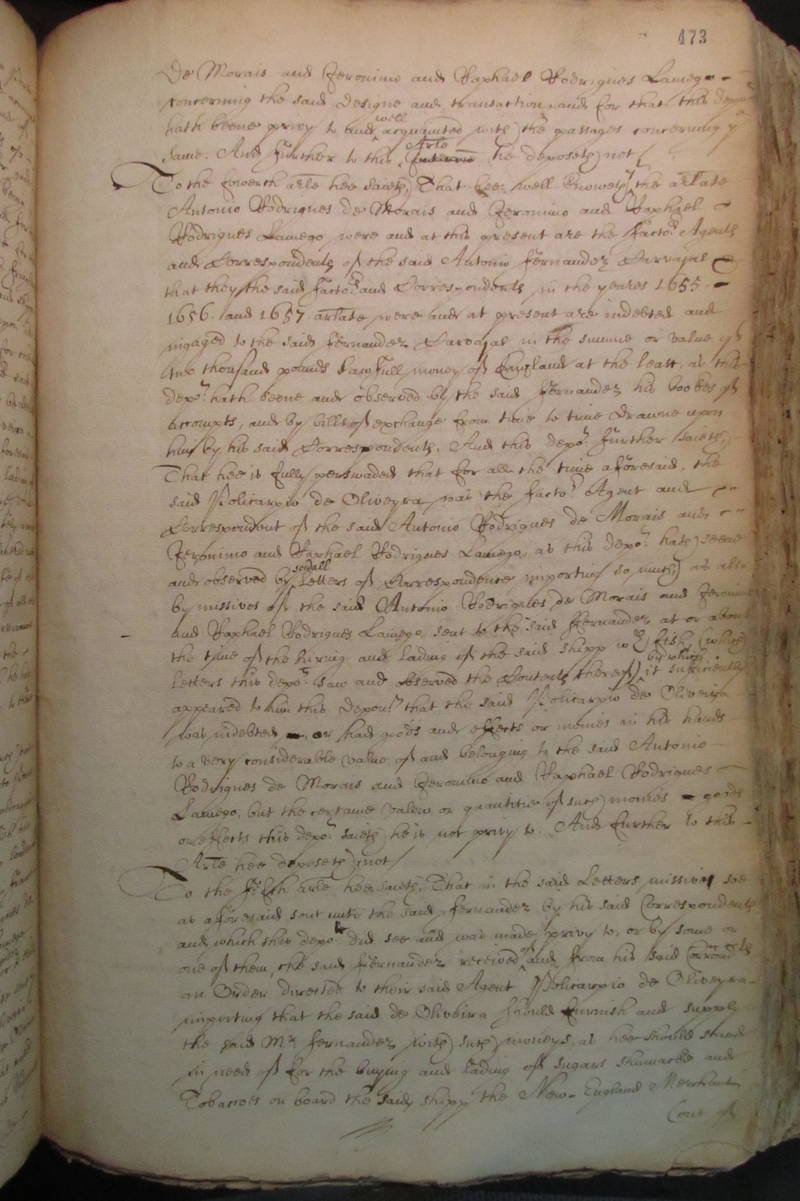 473
De Morais and Jeronimo and Raphael Rodrigues Lamego
concerning the said designe and transaction, and for that this depot
hath beene privy to and well acquainted with the passages concerning ye
same. And further to this Arle he deposeth not
To the fowerth arle hee saieth, That hee well knoweth, the arlate
Antonio Rodrigues de Morais and Jeronimo and Raphael
Rodrigues Lamego were and at this present are the factors Agents
and Correspondents of the said Antonio Fernandez Carvajal
that they the said factors and Correspondents, in the yeares 1655
1656 and 1657 arlate were and at present are indebted and
ingaged to the said Fernandez Carvajal in the summe or value of
two thousand pounds lawfull money of England at the least, as this
depot hath seene and observed by the said Fernandez his bookes of
accompts, and by bills of exchange from time to time drawne upon
him by his said Correspondents. And this depot further saieth,
That hee is fully perswaded that for all the time aforesaid, the
said Policarpio de Oliveyra was the factor Agent and
Correspondent of the said Antonio Rodrigues de Morais and
Jeronimo and Raphael Rodrigues Lamego, as this depot hath seene
and observed by severall Letters of Correspondence importing so much, as also
by missives of the said Antonio Rodrigues de Morais and Jeronimo
and Raphael Rodrigues Lamego, sent to the said Fernandez at or about
the time of the hiring and lading of the said shipp with fish (which
letters this depot saw and observed the Contents thereof) by which it sufficiently
appeared to him this deponent that the said Policarpio de Oliveira
was indebted or had goods and effects or monies in his hands
to a very considerable value of and belonging to the said Antonio
Rodrigues de Morais and Jeronimo and Raphael Rodrigues
Lamego, but the certaine valew or quantitie of such monies goods
or effects this depot saieth he is not privy to. And further to this
Arle hee deposeth not
To the fifth arle hee saieth, That in the said Letters missive soe
as aforesaid sent unto the said Fernandez by his said Correspondents
and which this depot did see and was made privy to, or by some or
one of them, the said Fernandez received of and from his said Correspondents
an Order directed to their said Agent Policarpio de Oliveyra
importing that the said de Oliveira should furnish and supply
the said Mr Fernandez with such moneys, as hee should stand
in need of for the buying and lading of sugars shumacke and
Tobaccoes on board the said shipp the New-England Merchant